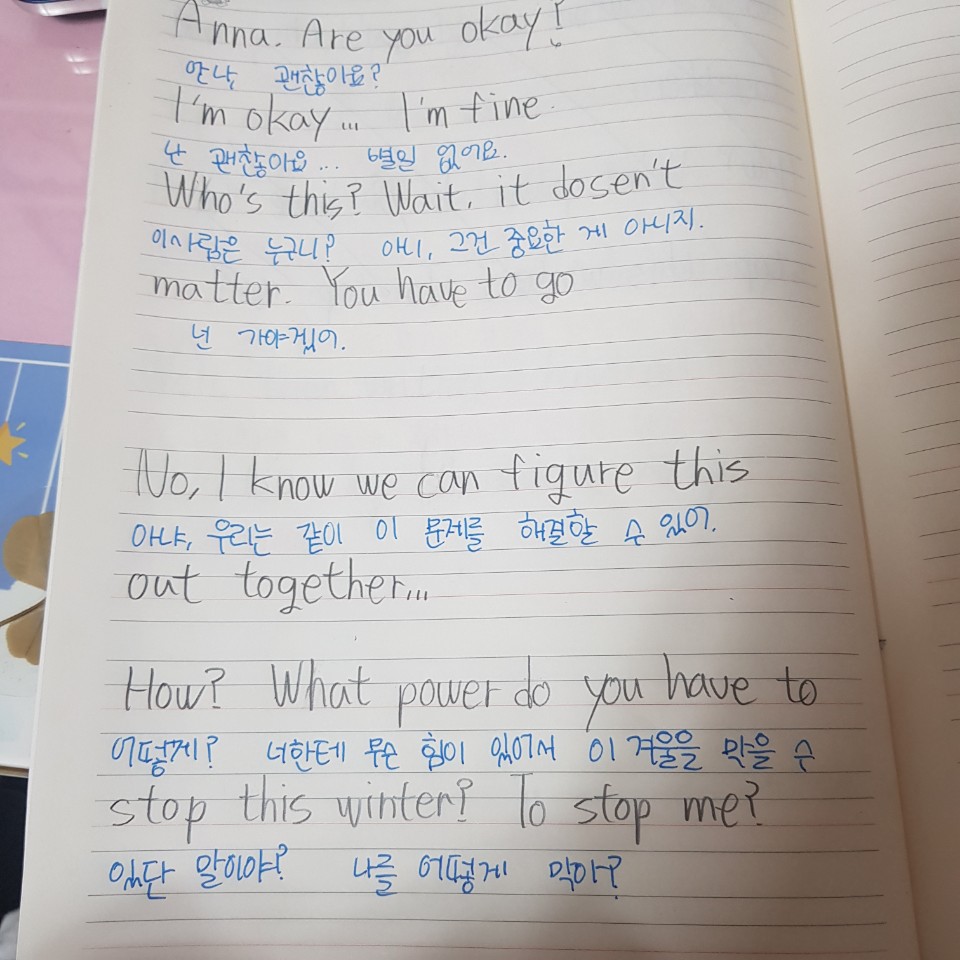 Anna. Are you okay?
안나, 괜찮아요?
I'm okay... I'm fine.
난 괜찮아요... 별일 없어요.
Who's this? Wait, it dosen't
이사람은 누구니? 아니, 그건 중요한 게 아니지.
matter. You have to go
넌 가야겠어.
No, I know we can figure this
아냐, 우리는 같이 이 문제를 해결할 수 있어.
out together...
How? What power do you have to
어떻게? 너한테 무슨 힘이 있어서 이 겨울을 막을 수
stop this winter? To stop me?
있단 말이야? 나를 어떻게 막아?